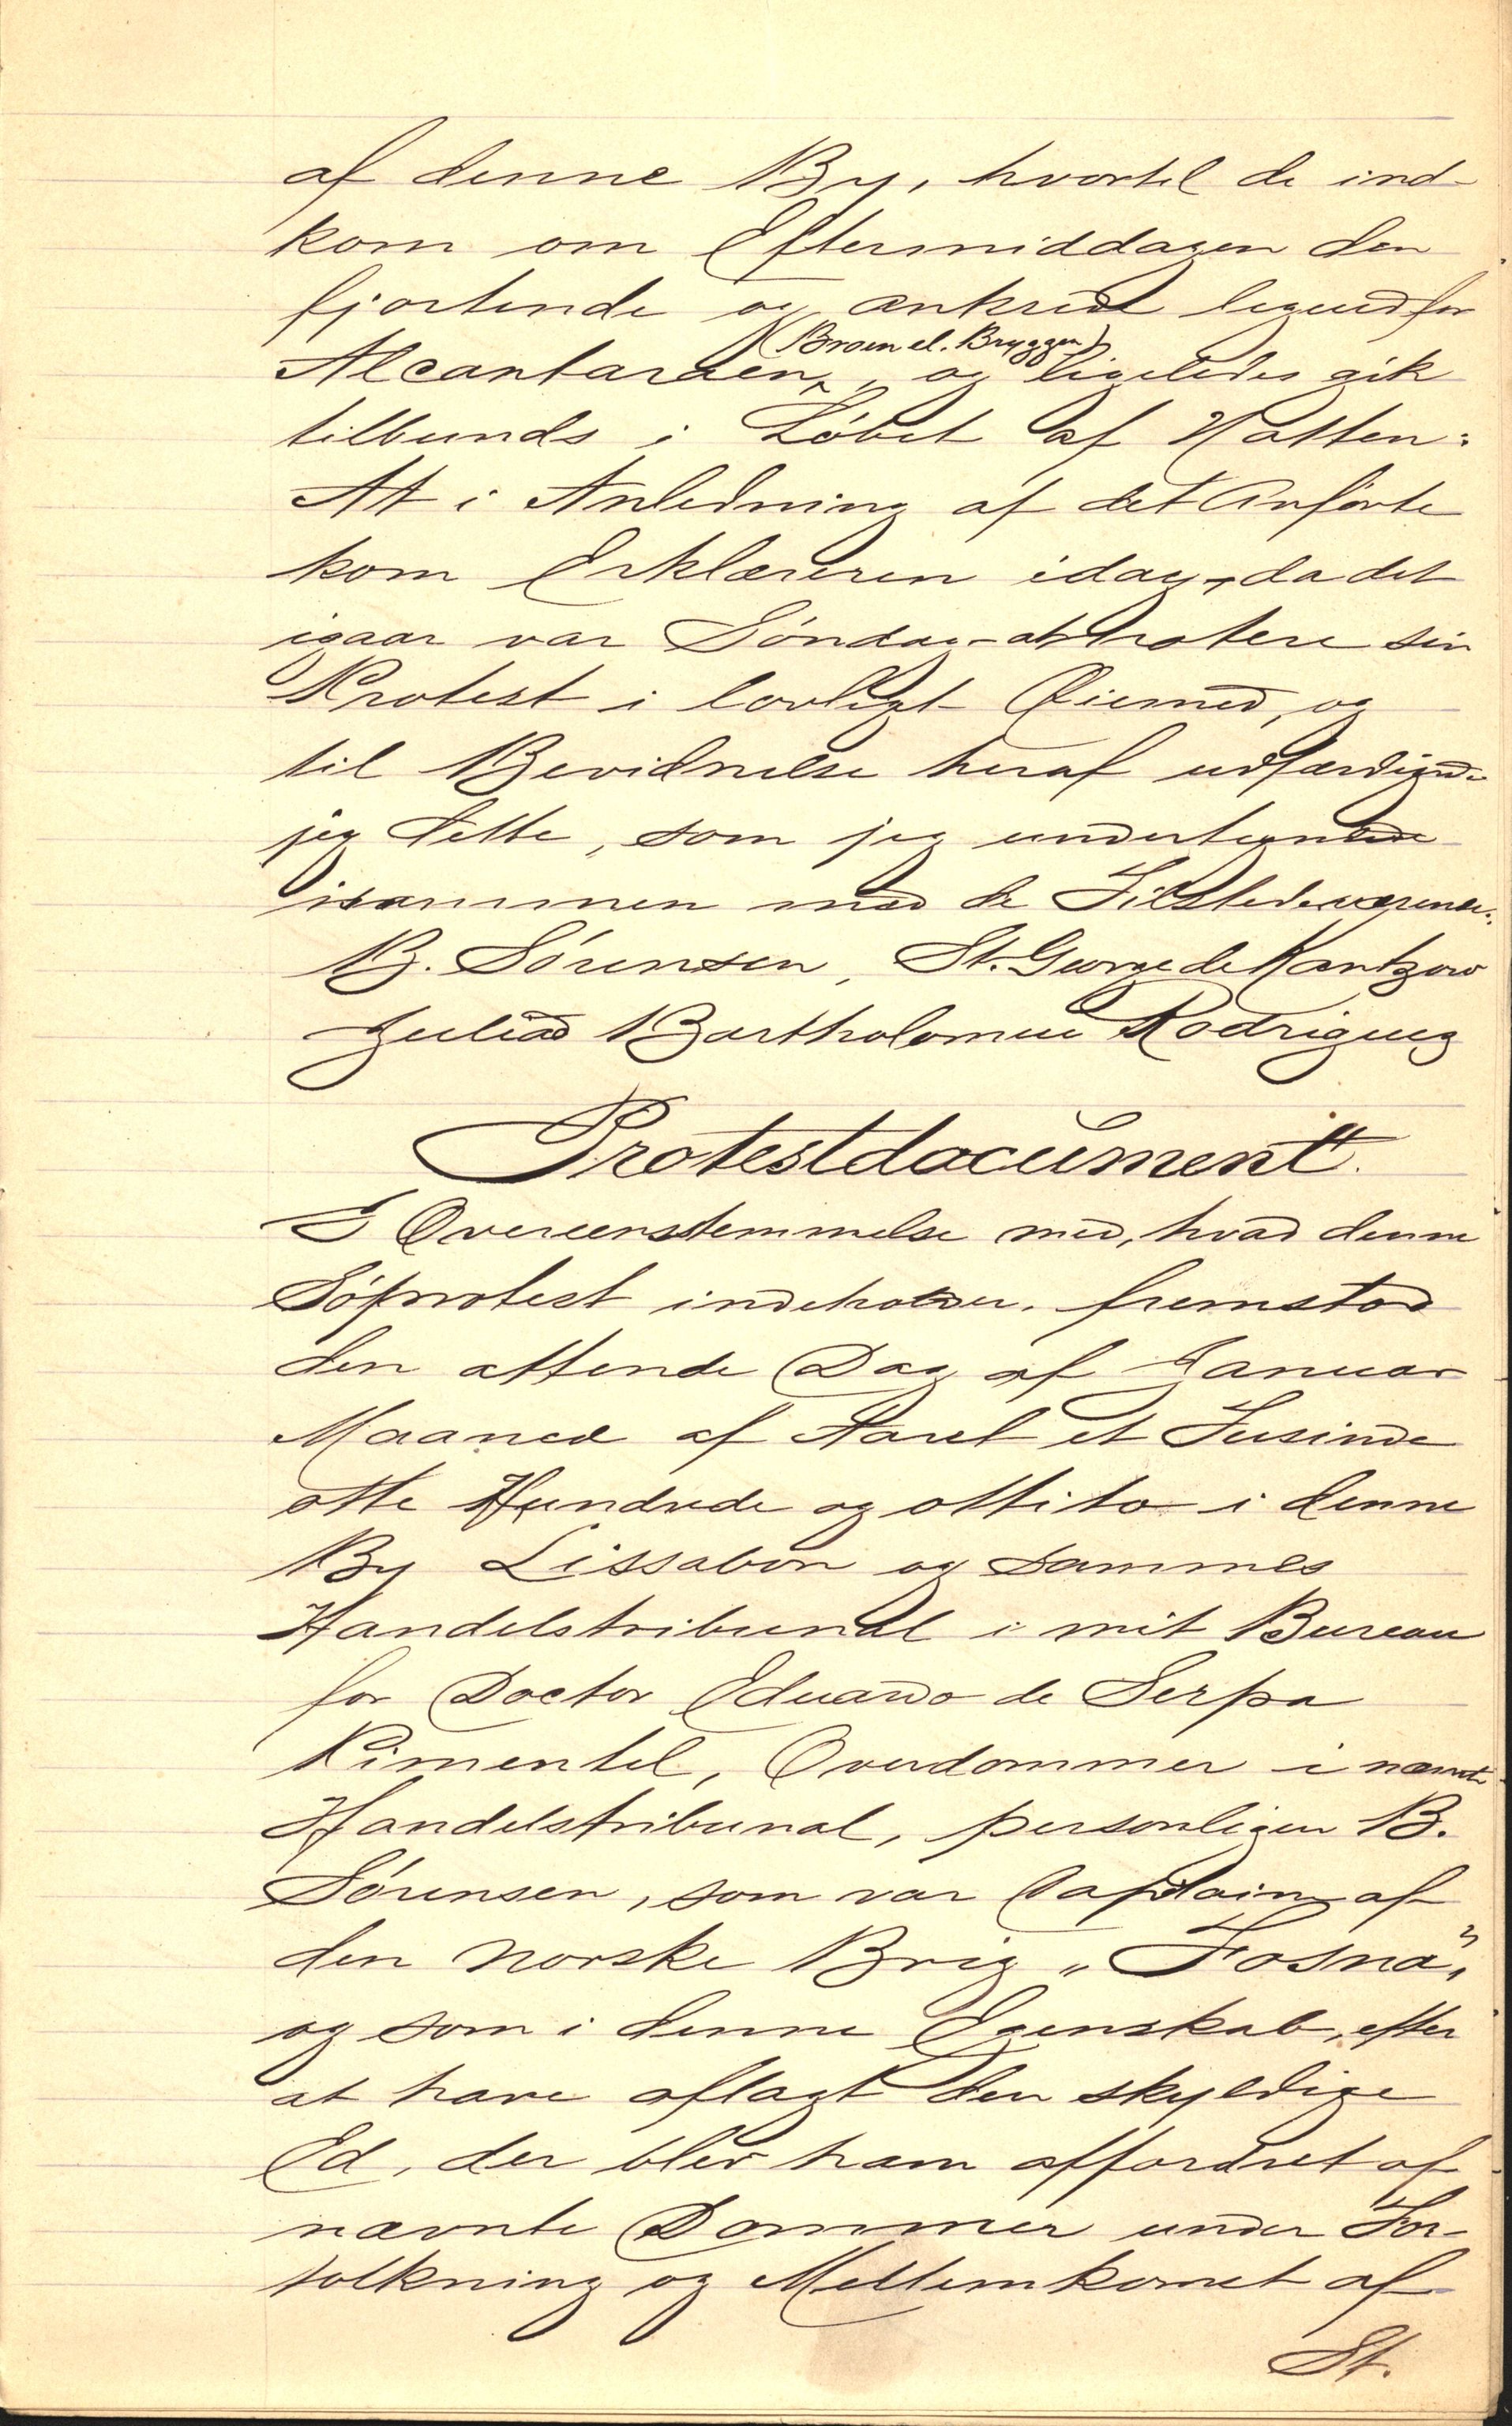 af denne By, hvortil de ind-
kom om Eftermiddagen den
fjortende og ankred ligeud for
(Broen el. Bryggen)
Alcantaraen, og ligeledes gik
tilbunds i Løbet af Natten:
At i Anledning af det Anførte
kom Erklæreren idag, da det
igaar var Søndag - at notere sin
Protest i lovligt Øiemed, og
til Bevidnelse heraf udfærdigede
jeg dette, som jeg undertegnede
isammen med de Tilstedeværende:
B. Sørensen, St. George de Kantzow
Juliaô Bartholomeu Rodriguez
Protestdocument.
I Overeensstemmelse med, hvad denne
Søprotest indeholder, fremstod
den attende Dag af Januar
Maaned af Aaret et Tusinde
otte Hundrede og ottito i denne
By Lissabon og sammes
Handelstribunal i mit Bureau
for Doctor Eduardo de Serpa
Pimentel, Overdommer i nævnte
Handelstribunal, personligen B.
Sørensen, som var Captain af
den norske Brig „Fosna",
og som i denne Egenskab, efter
at have aflagt den skyldige
Ed, der blev ham affordret af
nævnte Dommer under For-
tolkning og Mellemkomst af
St.